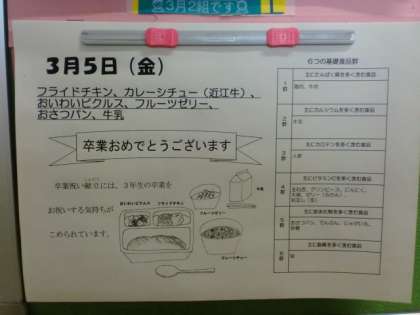 3月2組です
3月5日（金）
フライドチキン、カレーシチュー（近江牛）、
おいわいピクルス、フルーツゼリー、
おさつパン、牛乳
卒業おめでとうございます
卒業祝い献立には、3年生の卒業を
お祝いする気持ちが
こめられています。
おいわいピクルス
フライドチキン
フルーツゼリー
牛乳
6つの基礎食品群
1群
主にたんぱく質を多く含む食品
鶏肉、牛肉
2群
主にカルシウムを多く含む食品
牛乳
3群
主にカロテンを多く含む食品
人参
4群
主にビタミンCを多く含む食品
玉ねぎ、グリンピース、にんにく、
5群
主に炭水化物を多く含む食品
おさつパン、でんぷん、じゃがいも、
砂糖
6群
主に脂肪を多く含む食品
油